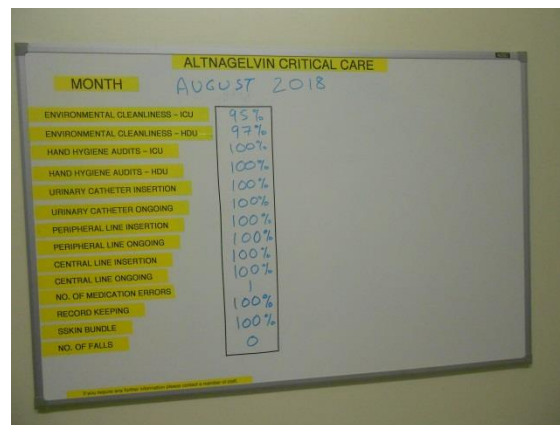 ALTNAGELVIN CRITICAL CARE
MONTH AUGUST 2018
ENVIRONMENTAL CLEANLINESS – ICU 95%
ENVIRONMENTAL CLEANLINESS – HDU 97%
HAND HYGIENE AUDITS – ICU 100%
HAND HYGIENE AUDITS – HDU 100%
URINARY CATHETER INSERTION 100%
URINARY CATHETER ONGOING 100%
PERIPHERAL LINE INSERTION 100%
PERIPHERAL LINE ONGOING 100%
CENTRAL LINE INSERTION 100%
CENTRAL LINE ONGOING 100%
NO. OF MEDICATION ERRORS 1
RECORD KEEPING 100%
SSKIN BUNDLE 100%
NO. OF FALLS 0
If you require any further information please contact a member of staff